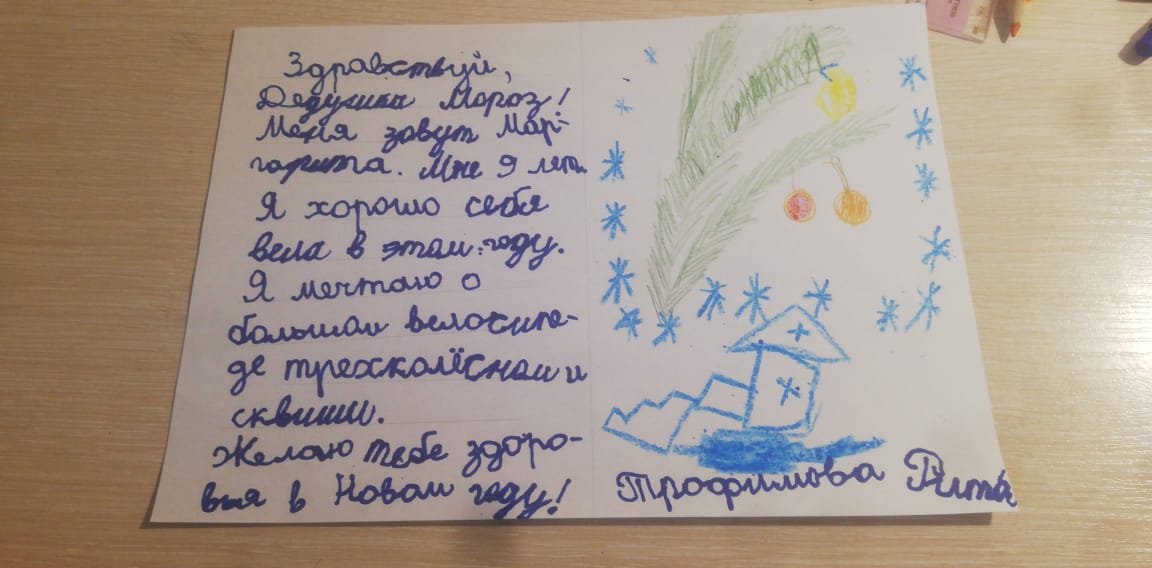 Здравствуй,
Дедушка Мороз!
Меня зовут Мар-
гарита. Мне 9 лет.
Я хорошо себя
вела в этом году.
Я мечтаю о
большом велосипе-
де трехколёсном и
сквиши.
Желаю тебе здоро-
вья в Новом году!
Трофимова Рита